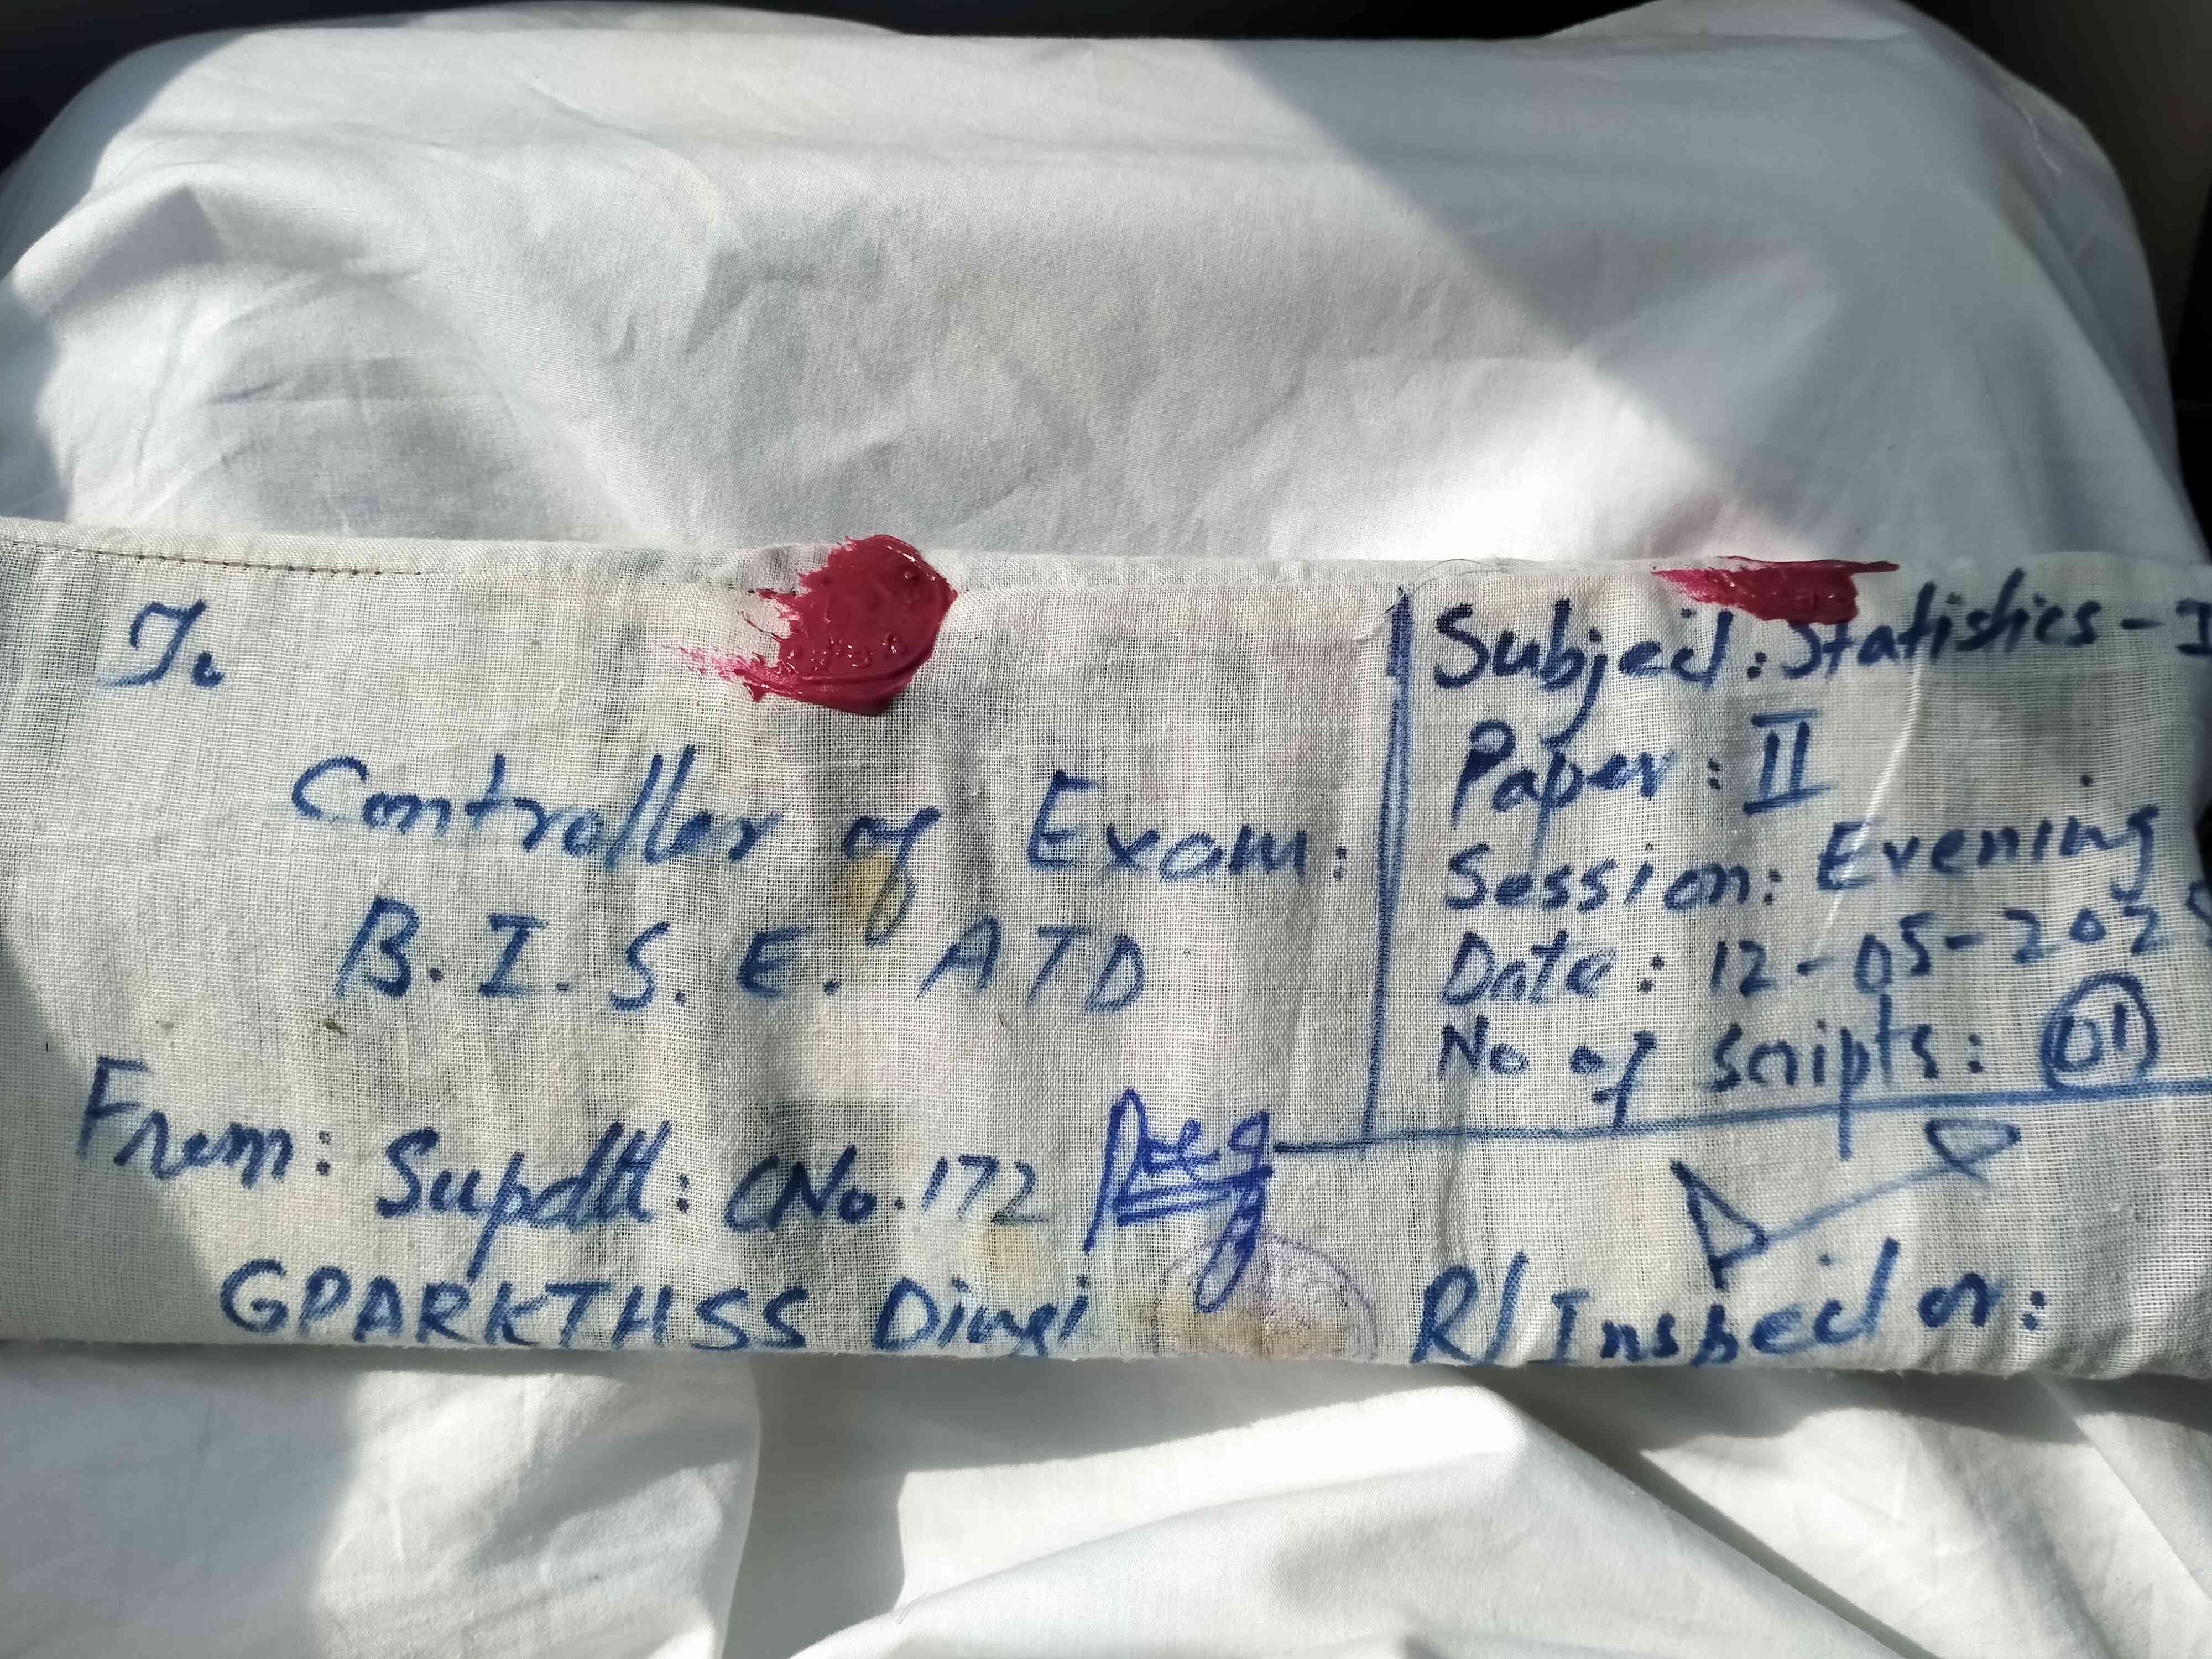 To
Controller of Exam:
B.I.S.E. ATD
From: Supdtt: CNo. 172
GPARKTHSS Dingi
Subject: Statistics - I
Paper: II
Session: Evening
Date: 12-05-202
No of Scripts: 01
R/Inspector: